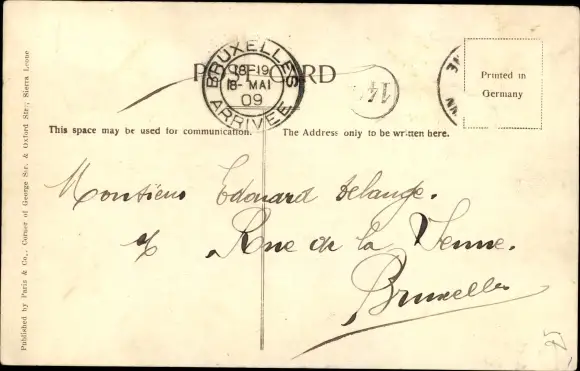 POST CARD
BRUXELLES
18-19
18- MAI
09
ARRIVÉE
Printed in
Germany
This space may be used for communication.
The Address only to be written here.
Monsieur Edouard Delange.
Rue de la Senne.
Bruxelles
25
Published by Paris & Co., Corner of George Str. & Oxford Str., Sierra Leone